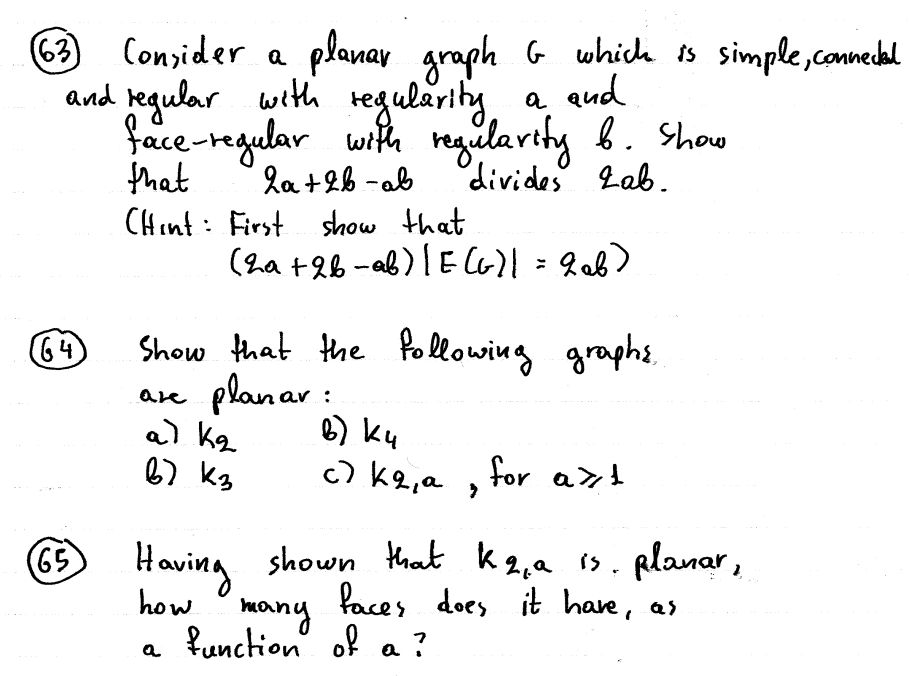 63 Consider a planar graph G which is simple, connected
and regular with regularity a and
face-regular with regularity b. Show
that 2a+2b-ab divides 2ab.
(Hint: First show that
(2a+2b-ab)|E(G)| = 2ab)
64 Show that the following graphs
are planar:
a) K2 b) K4
b) K3 c) K2,a , for a⩾1
65 Having shown that K2,a is planar,
how many faces does it have, as
a function of a?